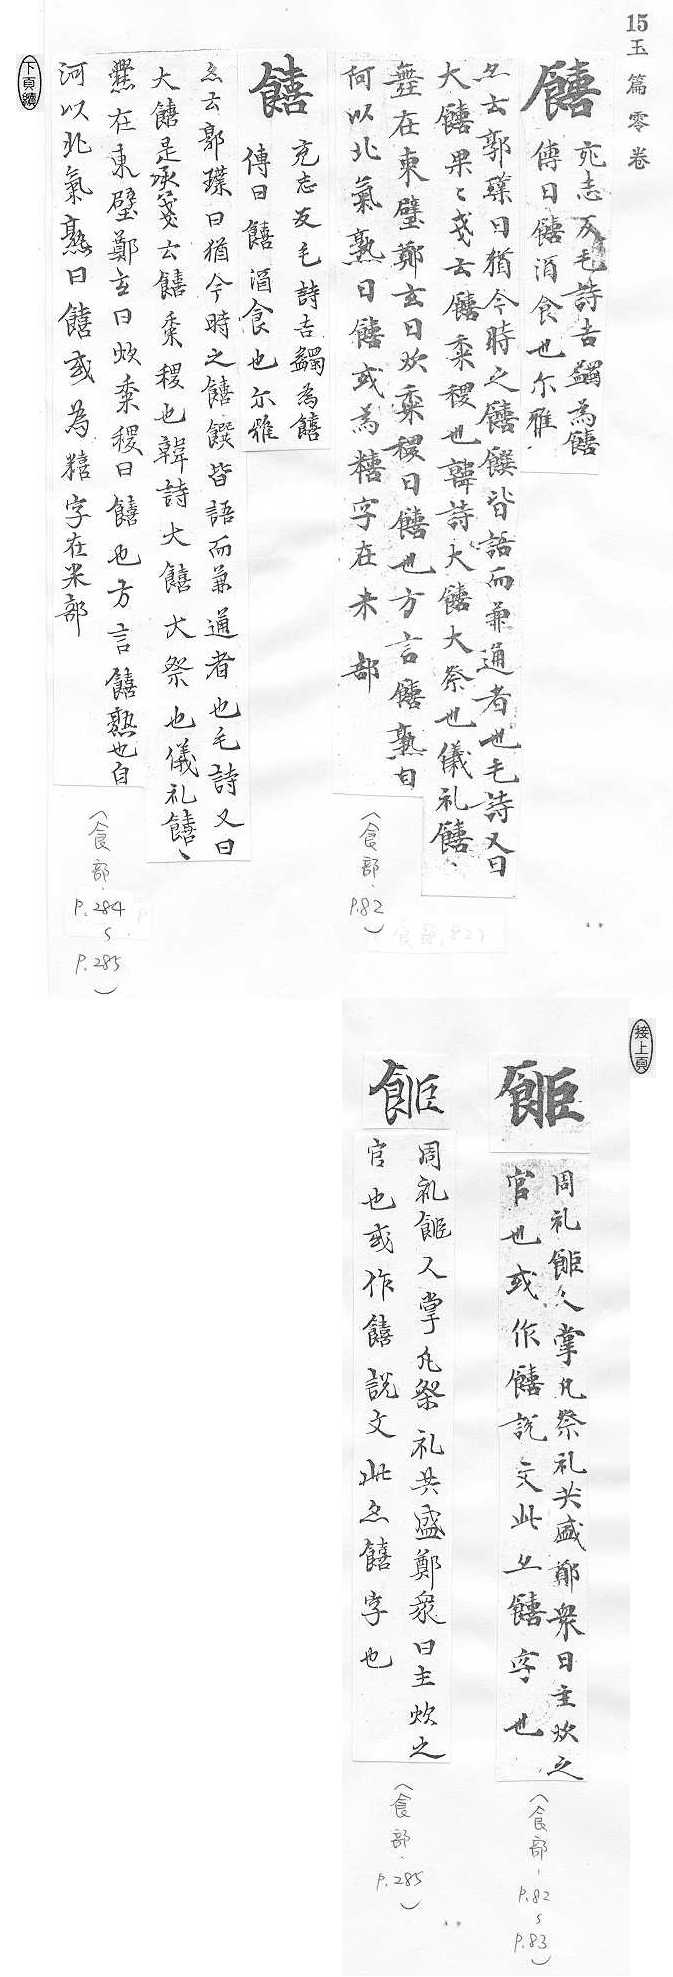 15
玉篇零卷
饎
充志反毛詩吉蠲為饎
傳曰饎酒食也尒雅
云郭璞曰猶今時之饎饌皆語而兼通者也毛詩又曰
大饎果〻戔云饎黍稷也韓詩大饎大祭也儀礼饎〻
在東壁鄭玄曰炊黍稷曰饎也方言饎熟曰
何以北氣熟曰饎或為糦字在米部
(食部.P.82)
饎
充志反毛詩吉蠲為饎
傳曰饎酒食也尒雅
云郭璞曰猶今時之饎饌皆語而兼通者也毛詩又曰
大饎是承戔云饎黍稷也韓詩大饎大祭也儀礼饎〻
爨在東壁鄭玄曰炊黍稷曰饎也方言饎熟也自
河以北氣熟曰饎或為糦字在米部
(食部.P.284~P.285)
下頁續
接上頁
䭜
周礼䭜人掌凡祭礼共盛鄭眾曰主炊之
官也或作饎說文此亦饎字也
(食部.P.82~P.83)
䭜
周礼䭜人掌凡祭礼共盛鄭眾曰主炊之
官也或作饎說文此亦饎字也
(食部.P.285)